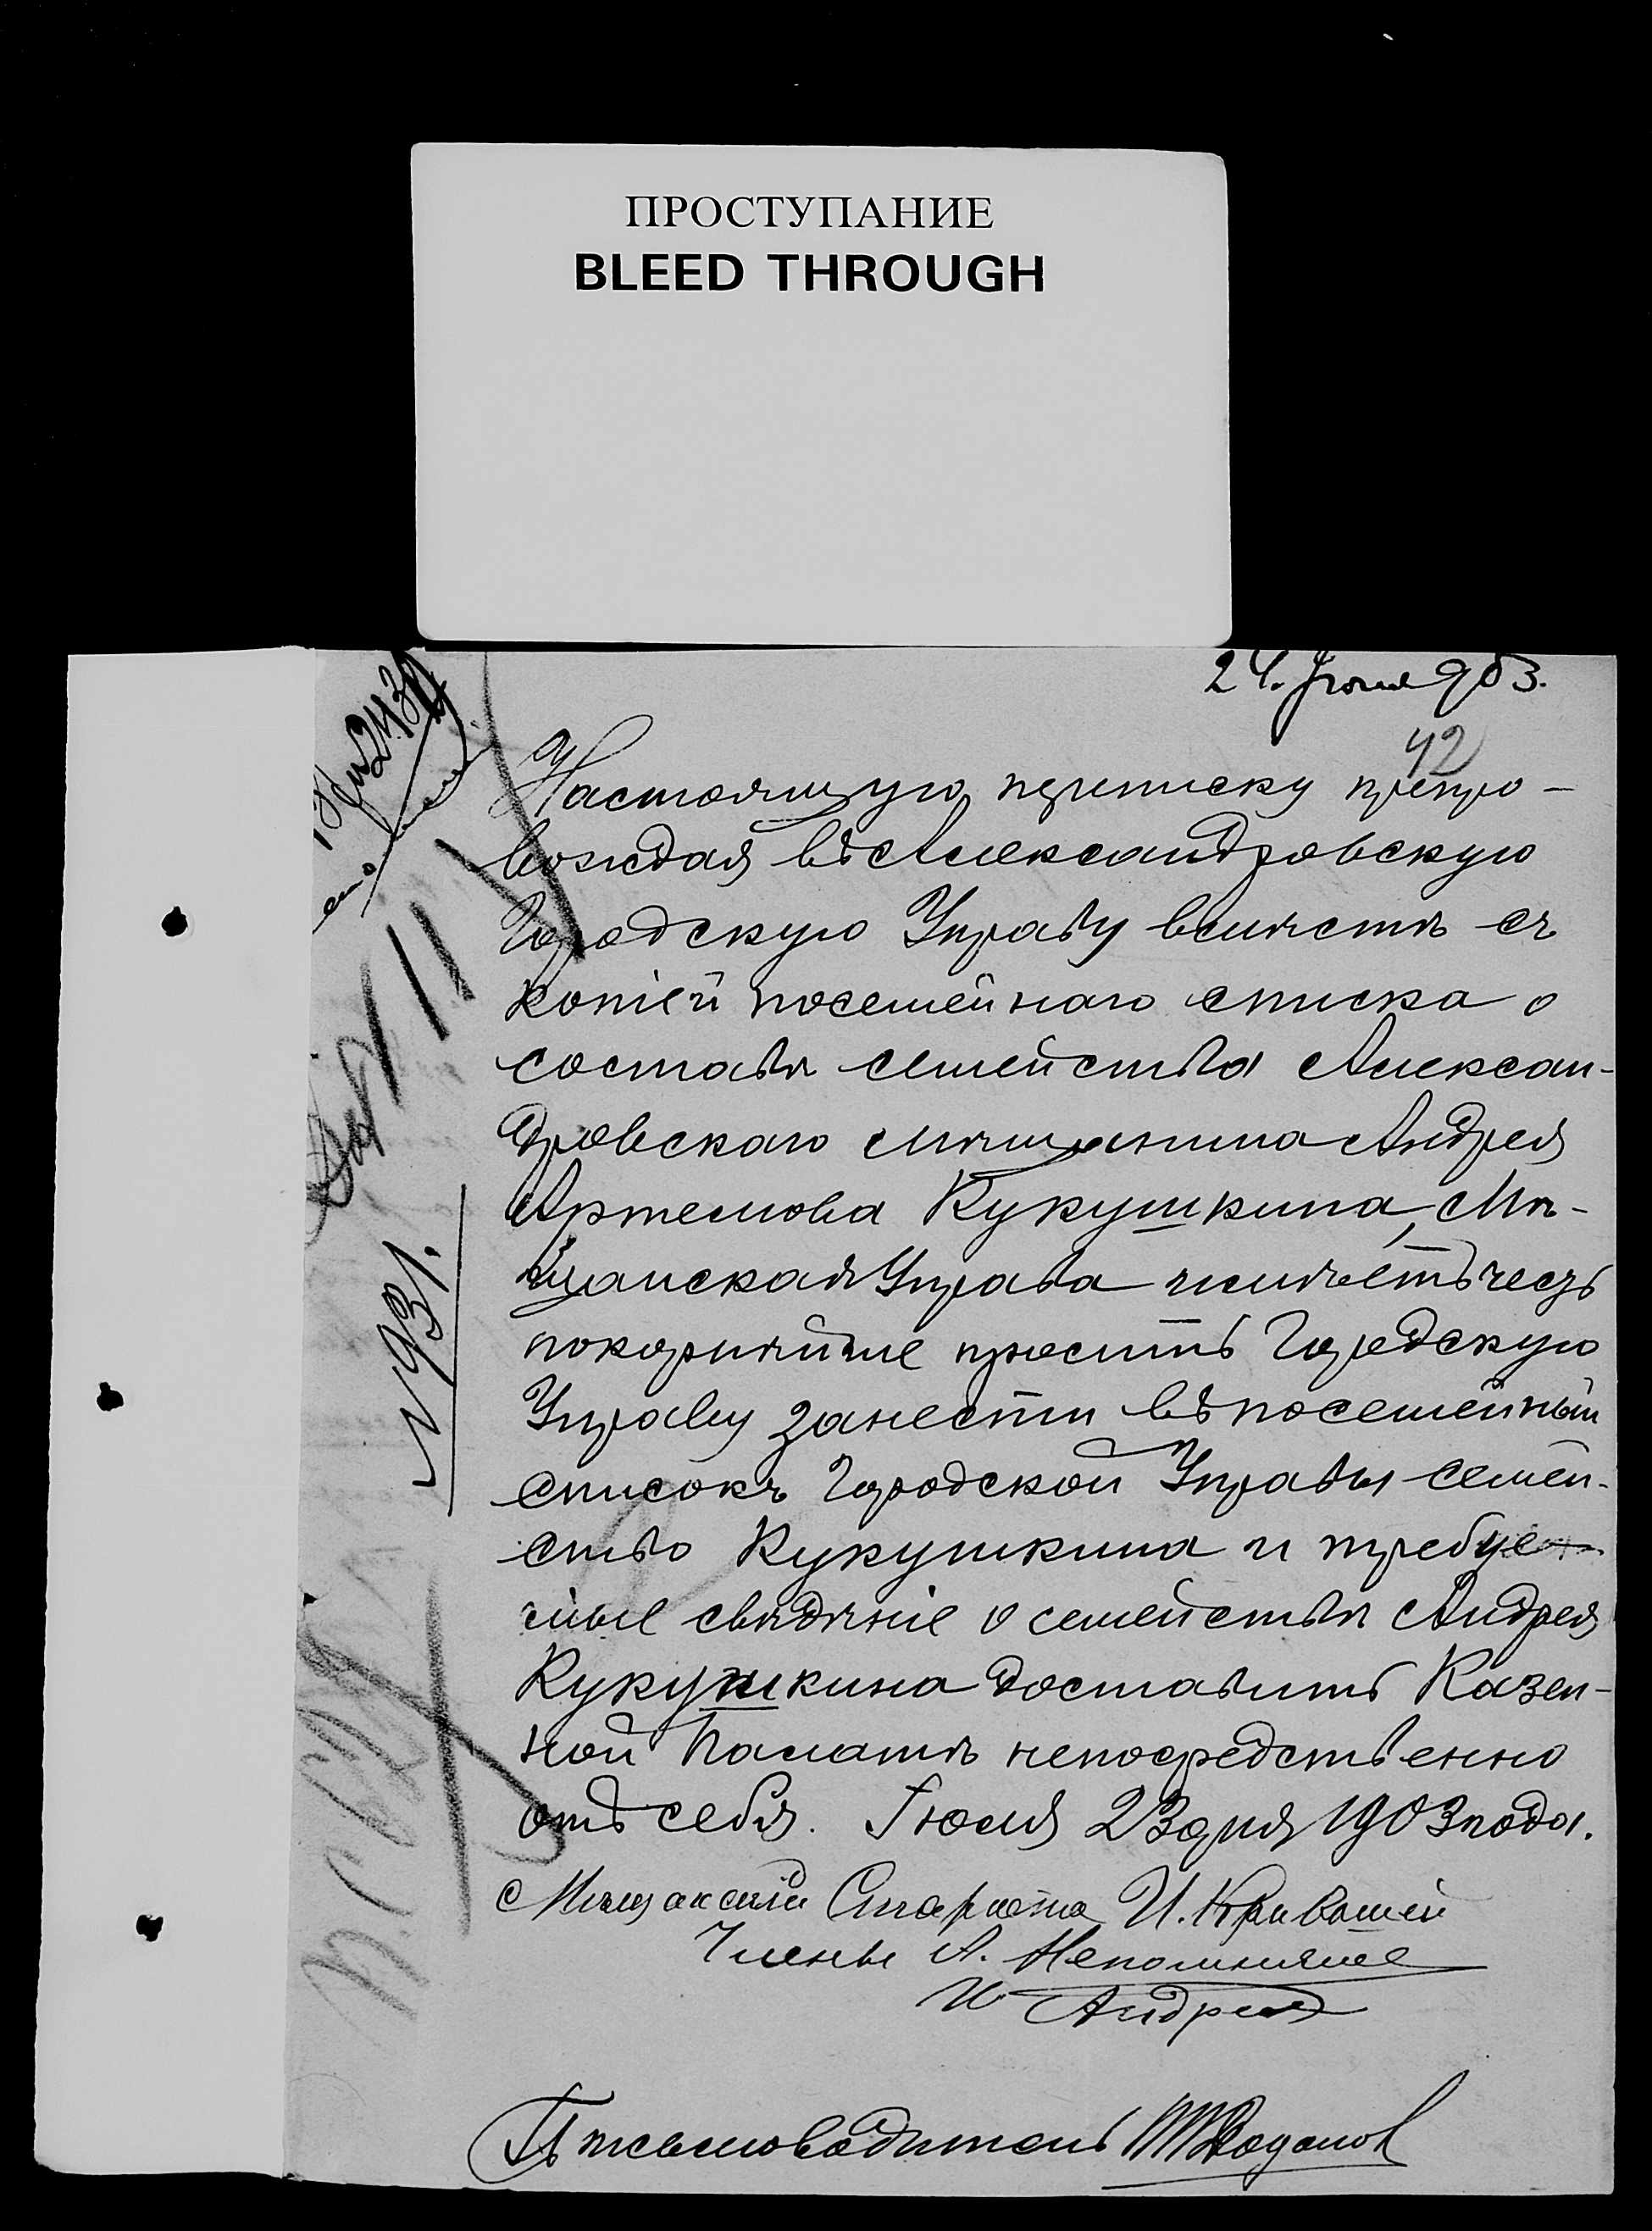 ПРОСТУПАНИЕ
BLEED THROUGH
24. Іюля 903.
42
Настоящую переписку препро-
вождая въ Александровскую
Городскую Управу вмѣстѣ съ
копіей посемейнаго списка о
составѣ семейства Алексан-
дровскаго мѣщанина Андрея
Артемова Кукушкина, Мѣ-
щанская Управа имѣетъ честь
покорнѣйше просить Городскую
Управу занести въ посемейный
списокъ Городской Управы семей-
ство Кукушкина и требуе-
мые свѣдѣніе о семействѣ Андрея
Кукушкина доставить Казен-
ной Палатѣ непосредственно
отъ себя. Іюля 23 дня 1903 года.
Мѣщанскій Староста И. Кривошей
Члены А. Непомнящіе
И Андрея
Письмоводитель
№ 931.